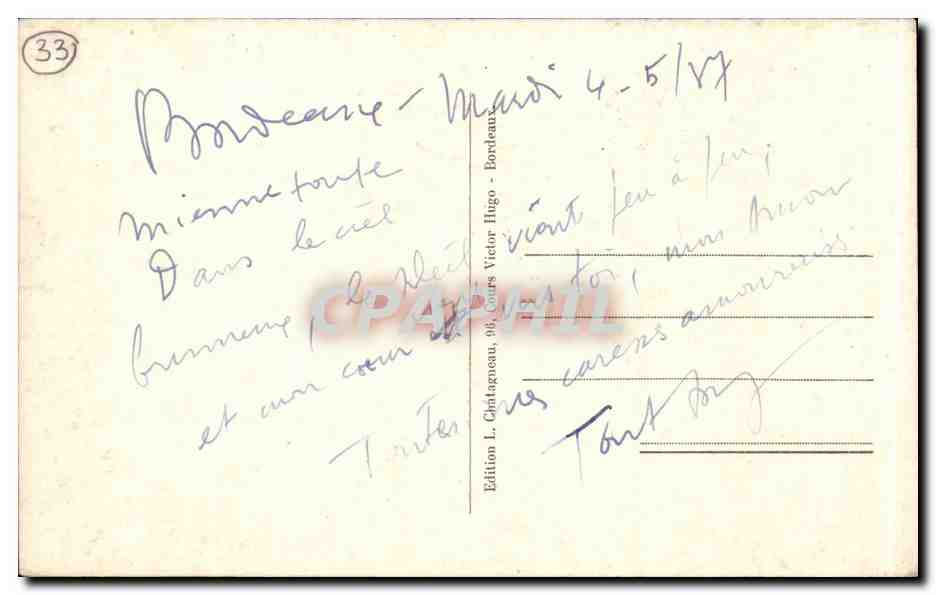 33
Bordeaux - Mardi 4-5/37
mienne toute
Dans le ciel
brumeux, le soleil vient peu à peu,
et mon cœur est vers toi, mon
Toutes mes caresses amoureuses.
Tout
Edition L. Châtagneau, 96, Cours Victor Hugo - Bordeaux
CPAPHIL